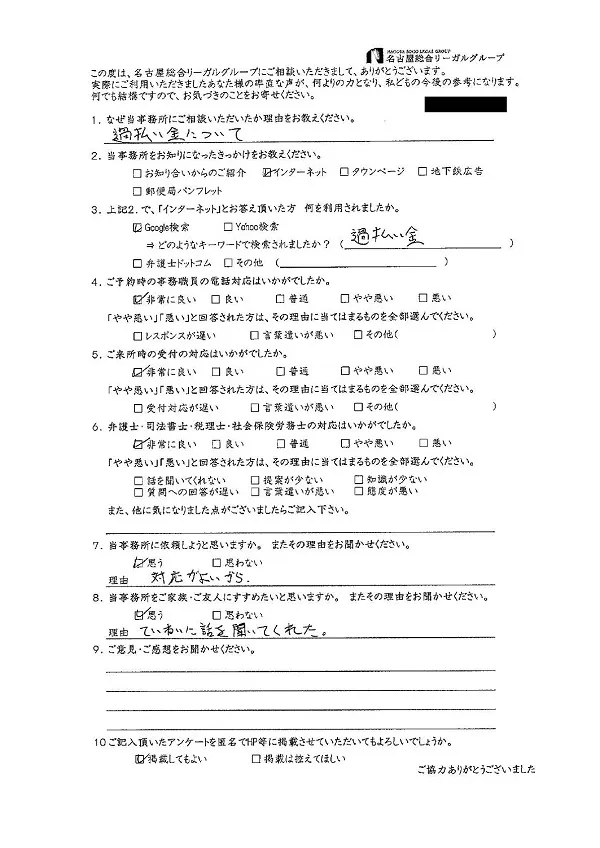 NAGOYA SOGO LEGAL GROUP
名古屋総合リーガルグループ
この度は、名古屋総合リーガルグループにご相談いただきまして、ありがとうございます。
実際にご利用いただきましたあなた様の率直な声が、何よりの力となり、私どもの今後の参考になります。
何でも結構ですので、お気づきのことをお寄せください。
1. なぜ当事務所にご相談いただいたか理由をお教えください。
過払い金について
2. 当事務所をお知りになったきっかけをお教えください。
□お知り合いからのご紹介 ☑インターネット □タウンページ □地下鉄広告
□郵便局パンフレット
3. 上記2. で、「インターネット」とお答え頂いた方 何を利用されましたか。
☑Google検索 □Yahoo検索
⇒ どのようなキーワードで検索されましたか? (過払い金)
□弁護士ドットコム □その他 ( )
4. ご予約時の事務職員の電話対応はいかがでしたか。
☑非常に良い □良い □普通 □やや悪い □悪い
「やや悪い」「悪い」と回答された方は、その理由に当てはまるものを全部選んでください。
□レスポンスが遅い □言葉遣いが悪い □その他( )
5. ご来所時の受付の対応はいかがでしたか。
☑非常に良い □良い □普通 □やや悪い □悪い
「やや悪い」「悪い」と回答された方は、その理由に当てはまるものを全部選んでください。
□受付対応が遅い □言葉遣いが悪い □その他( )
6. 弁護士・司法書士・税理士・社会保険労務士の対応はいかがでしたか。
☑非常に良い □良い □普通 □やや悪い □悪い
「やや悪い」「悪い」と回答された方は、その理由に当てはまるものを全部選んでください。
□話を聞いてくれない □提案が少ない □知識が少ない
□質問への回答が遅い □言葉遣いが悪い □態度が悪い
また、他に気になりました点がございましたらご記入下さい。
7. 当事務所に依頼しようと思いますか。 またその理由をお聞かせください。
☑思う □思わない
理由 対応がよいから.
8. 当事務所をご家族・ご友人にすすめたいと思いますか。 またその理由をお聞かせください。
☑思う □思わない
理由 ていねいに話を聞いてくれた。
9. ご意見・ご感想をお聞かせください。
10 ご記入頂いたアンケートを匿名でHP等に掲載させていただいてもよろしいでしょうか。
☑掲載してもよい □掲載は控えてほしい
ご協力ありがとうございました